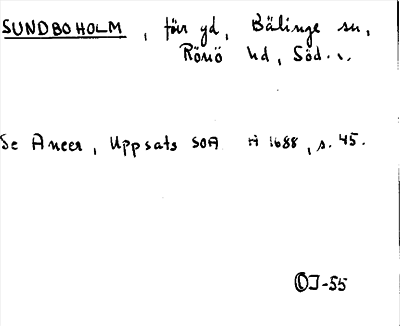 SUNDBOHOLM, förr gd, Bälinge sn,
Rönö hd, Söd. l.
Se Aneer, Uppsats SOA H 1688, s. 45.
OJ-55